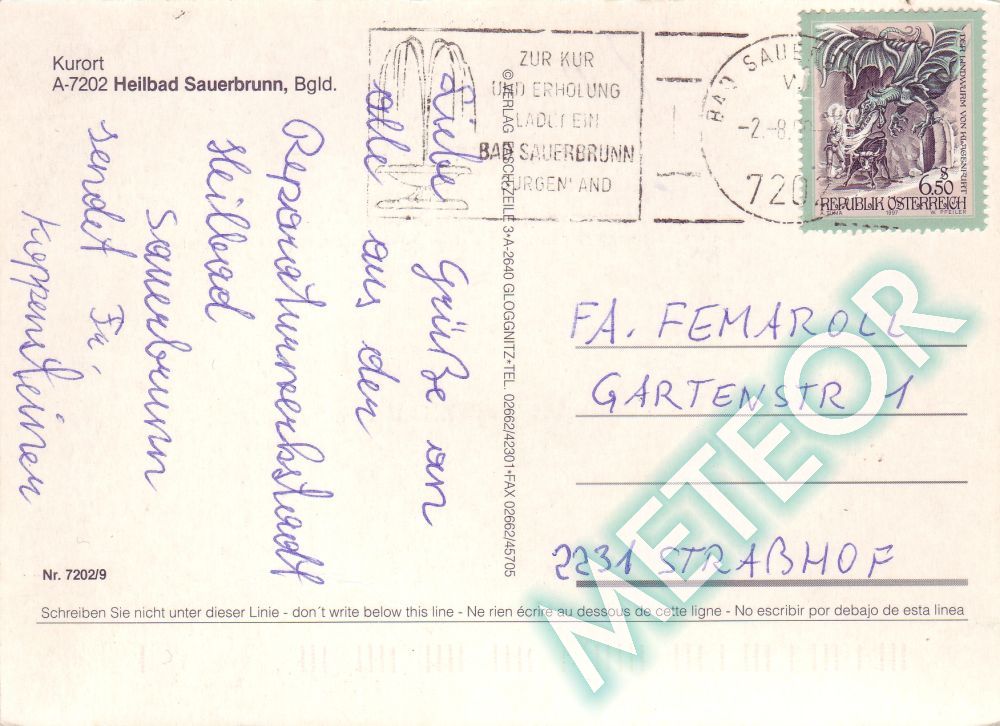 Kurort
A-7202 Heilbad Sauerbrunn, Bgld.
ZUR KUR
UND ERHOLUNG
LADET EIN
BAD SAUERBRUNN
BURGENLAND
BAD SAUER
-2.-8.
7202
DER LINDWURM VON KLAGENFURT
S
6.50
REPUBLIK ÖSTERREICH
1997 W. PFEILER
Liebe Grüße an
alle aus der
Reparaturwerkstadt
Heilbad
Sauerbrunn
sendet Fr.
© VERLAG 3•A-2640 GLOGGNITZ•TEL. 02662/42301•FAX 02662/45705
FA. FEMAROLL
GARTENSTR 1
2231 STRAßHOF
METEOR
Nr. 7202/9
Schreiben Sie nicht unter dieser Linie - don´t write below this line - Ne rien écrire au dessous de cette ligne - No escribir por debajo de esta linea